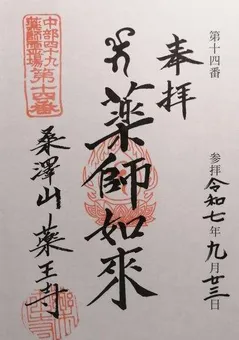 第十四番
参拝 令和七年九月廿三日
奉拝
薬師如來
中部四十九
薬師霊場第十四番
桑澤山 薬王寺